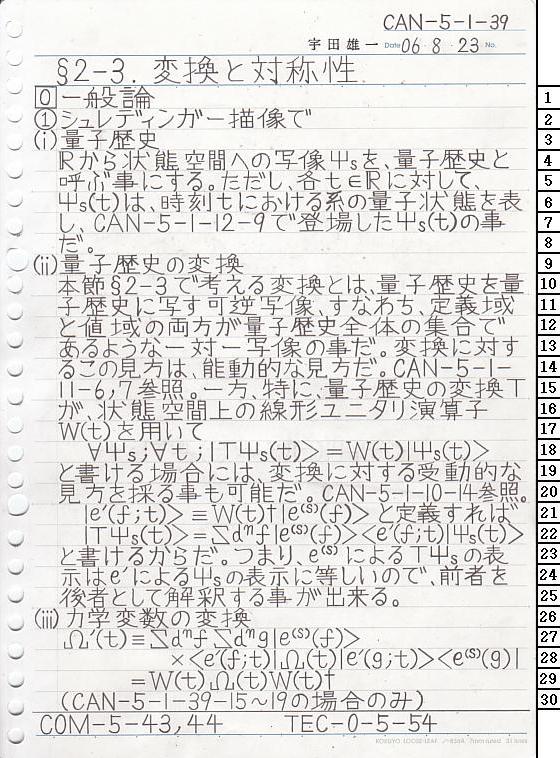 CAN-5-1-39
宇田雄一 Date 06・8・23 No.
§2-3. 変換と対称性
0 一般論
① シュレディンガー描像で
(i) 量子歴史
ℝから状態空間への写像Ψsを、量子歴史と
呼ぶ事にする。ただし、各t∈ℝに対して、
Ψs(t)は、時刻tにおける系の量子状態を表
し、CAN-5-1-12-9で登場したΨs(t)の事
だ。
(ii) 量子歴史の変換
本節§2-3で考える変換とは、量子歴史を量
子歴史に写す可逆写像、すなわち、定義域
と値域の両方が量子歴史全体の集合で
あるような一対一写像の事だ。変換に対す
るこの見方は、能動的な見方だ。CAN-5-1-
11-6,7参照。一方、特に、量子歴史の変換T
が、状態空間上の線形ユニタリ演算子
W(t)を用いて
∀Ψs;∀t;|TΨs(t)> = W(t)|Ψs(t)>
と書ける場合には、変換に対する受動的な
見方を採る事も可能だ。CAN-5-1-10-14参照。
|e′(f;t)> ≡ W(t)†|e⁽ˢ⁾(f)> と定義すれば
|TΨs(t)> = Σdⁿf|e⁽ˢ⁾(f)><e′(f;t)|Ψs(t)>
と書けるからだ。つまり、e⁽ˢ⁾によるTΨsの表
示はe′によるΨsの表示に等しいので、前者を
後者として解釈する事が出来る。
(iii) 力学変数の変換
Ω′(t) ≡ Σdⁿf Σdⁿg|e⁽ˢ⁾(f)>
×<e′(f;t)|Ω(t)|e′(g;t)><e⁽ˢ⁾(g)|
= W(t)Ω(t)W(t)†
(CAN-5-1-39-15~19の場合のみ)
COM-5-43,44 TEC-0-5-54
1
2
3
4
5
6
7
8
9
10
11
12
13
14
15
16
17
18
19
20
21
22
23
24
25
26
27
28
29
30